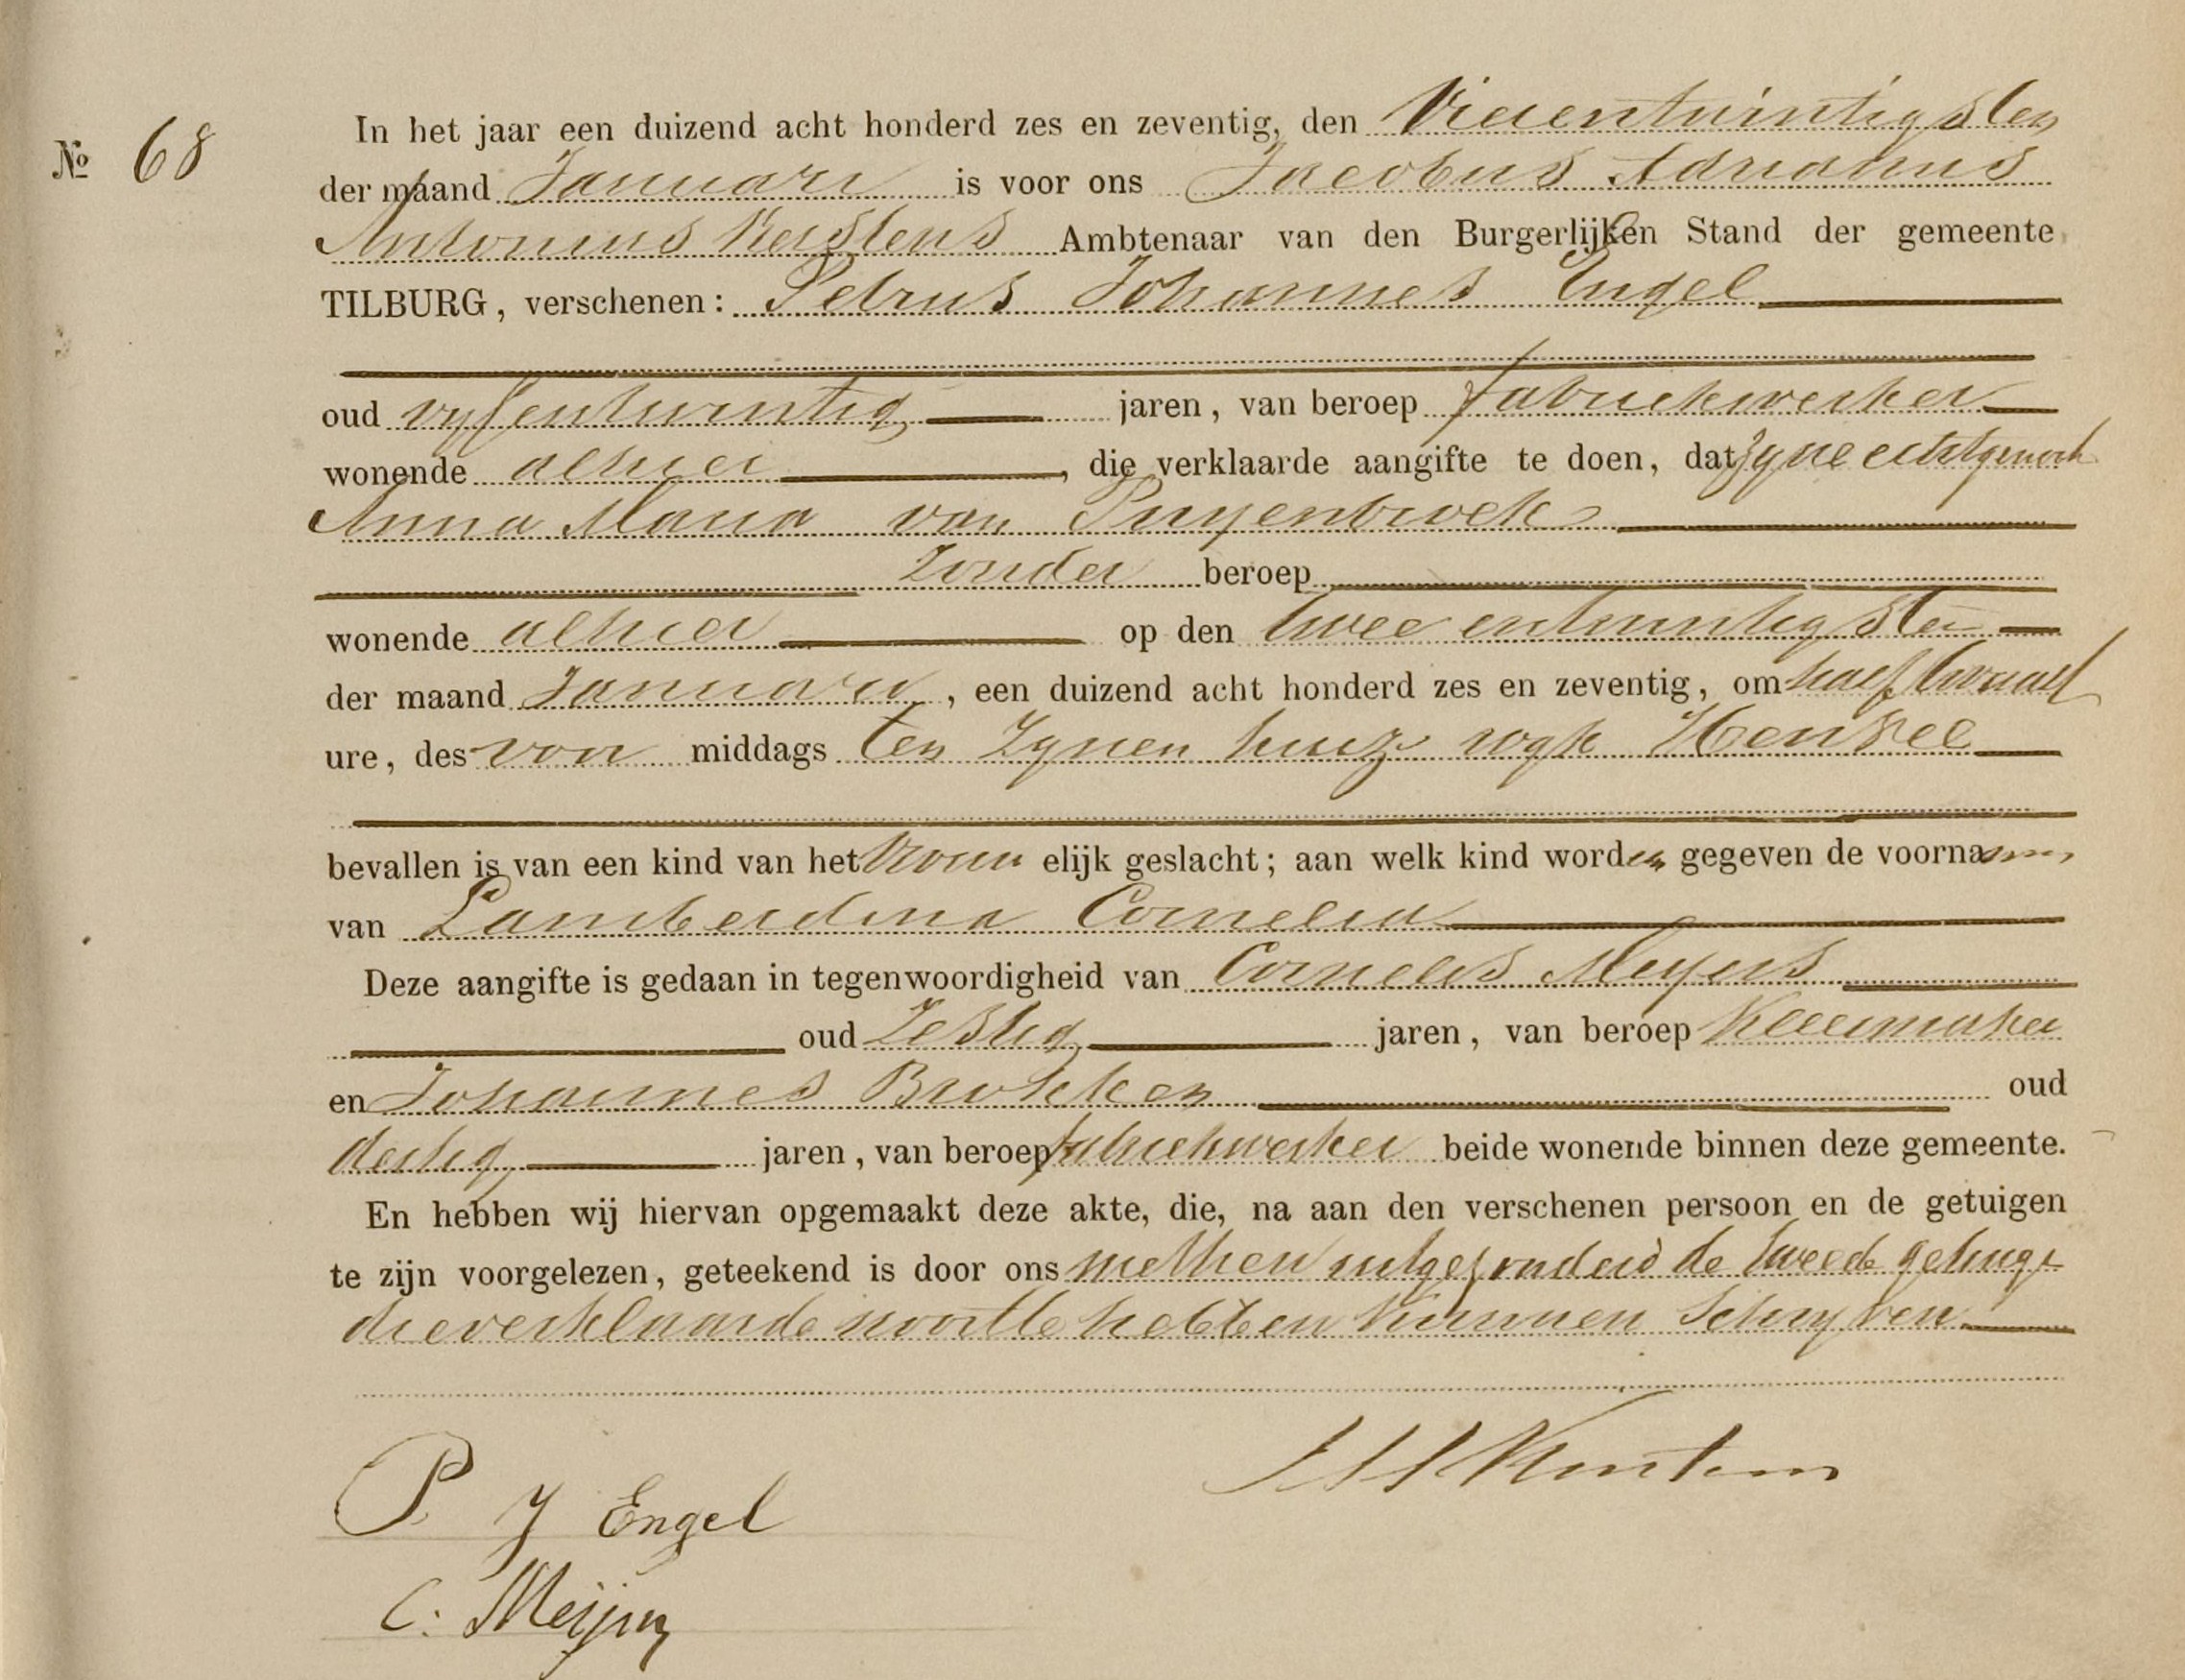 № 68
In het jaar een duizend acht honderd zes en zeventig, den Vierentwintigsten
der maand Januari is voor ons Jacobus Adrianus
Antonius Kerstens Ambtenaar van den Burgerlijken Stand der gemeente
TILBURG, verschenen: Petrus Johannes Engel
oud vyfentwintig jaren, van beroep fabriekwerker
wonende alhier, die verklaarde aangifte te doen, dat zyne echtgenoote
Anna Maria van Puyenbroek
zonder beroep
wonende alhier op den twee entwintigsten
der maand Januari, een duizend acht honderd zes en zeventig, om half twaalf
ure, des voor middags ten zynen huize wyk Heuvel
bevallen is van een kind van het vrouwelijk geslacht; aan welk kind worden gegeven de voornamen
van Lamberdina Cornelia
Deze aangifte is gedaan in tegenwoordigheid van Cornelis Meyers
oud Zestig jaren, van beroep Kleermaker
en Johannes Brokken oud
dertig jaren, van beroep fabriekwerker beide wonende binnen deze gemeente.
En hebben wij hiervan opgemaakt deze akte, die, na aan den verschenen persoon en de getuigen
te zijn voorgelezen, geteekend is door ons met hen uitgezonderd de tweede getuige
die verklaarde nooit te hebben kunnen schryven
P J Engel
C. Meijers